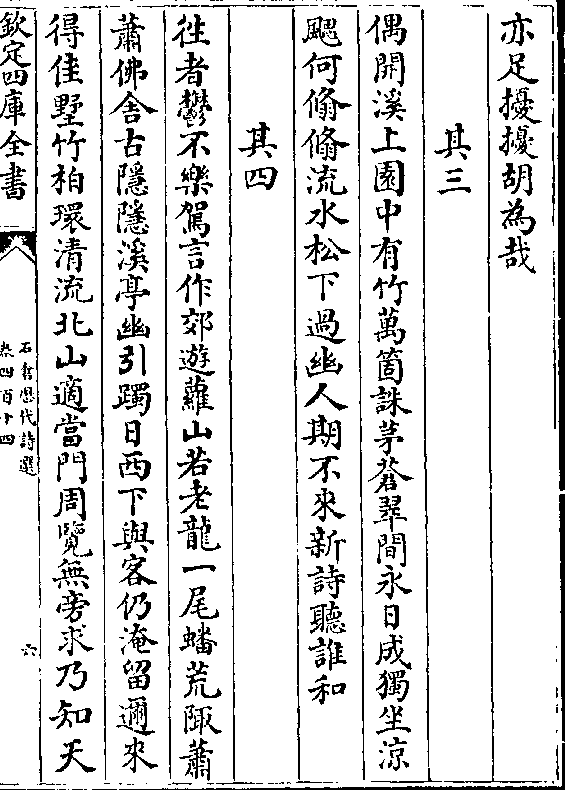 亦足擾擾胡為哉
其三
偶開溪上園中有竹萬箇誅茅蒼翠間永日成獨坐涼
颸何翛翛流水松下過幽人期不來新詩聽誰和
其四
往者鬱不樂駕言作郊遊蘿山若老龍一尾蟠荒陬蕭
蕭佛舍古隱隱溪亭幽引躅日西下與客仍淹留邇來
得佳墅竹柏環清流北山適當門周覽無旁求乃知天
欽定四庫全書
石倉歷代詩選
卷四百十四
六